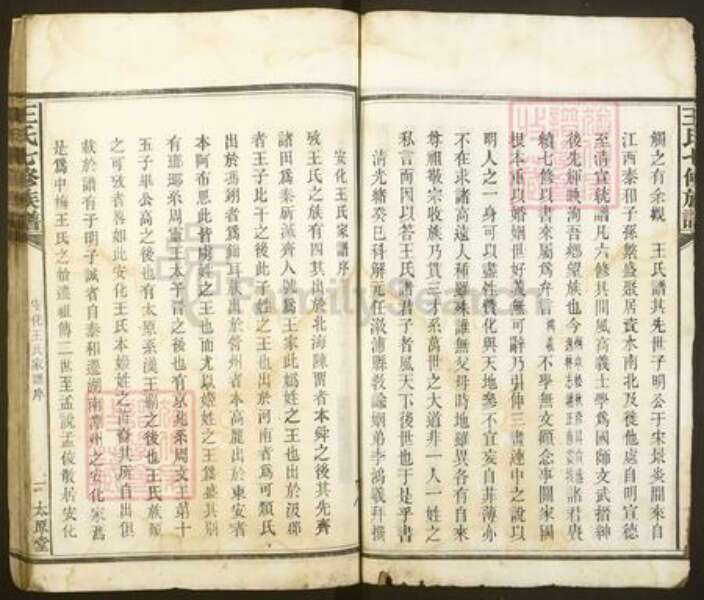 王氏七修族譜
觸之有余覥　王氏譜其先世子明公于宋景炎間來自
江西泰和子孫繁盛聚居資水南北及徙他處自明宣德
至清宣統譜凡六修其間風高義士學爲國師文武搢紳
後先輝映洵吾鄉望族也今諸君賡
續七修以書來屬爲弁言鴻義不學無文顧念事關家國
根本重以婚姻世好義無可辭乃引伸三書連中之說以
明人之一身可以盡性賛化與天地參不宜妄自菲薄亦
不在求諸高遠人種雖殊誰無父母時地雖異各有自來
尊祖敬宗收族乃貫三才系萬世之大道非一人一姓之
私言而因以答王氏諸君子者風天下後世也于是乎書
清光緒癸巳科解元任漵浦縣敎諭姻弟李鴻義拜撰
安化王氏家譜序
攷王氏之族有四其出於北海陳留者本舜之後其先齊
諸田爲秦所滅齊人號爲王家此嬀姓之王也出於汲郡
者王子比干之後此子姓之王也出於河南者爲可頻氏
出於馮翊者爲鉗耳族出於營州者本高麗出於東安者
本阿布思此皆虜姓之王也而尤以姬姓之王爲盛其別
有瑯琊系周靈王太子晉之後也有京兆系周文王第十
五子畢公高之後也有太原系漢王霸之後也王氏族類
之可攷者署如此安化王氏本姬姓之裔商其所自出俱
載於譜有于明子誠者自泰和遷湖南潭州之安化家焉
是爲中梅王氏之始遷祖傳二世至孟說孟俊散居安化
王氏七修族譜
安化王氏家譜序
二
太原堂
FamilySearch